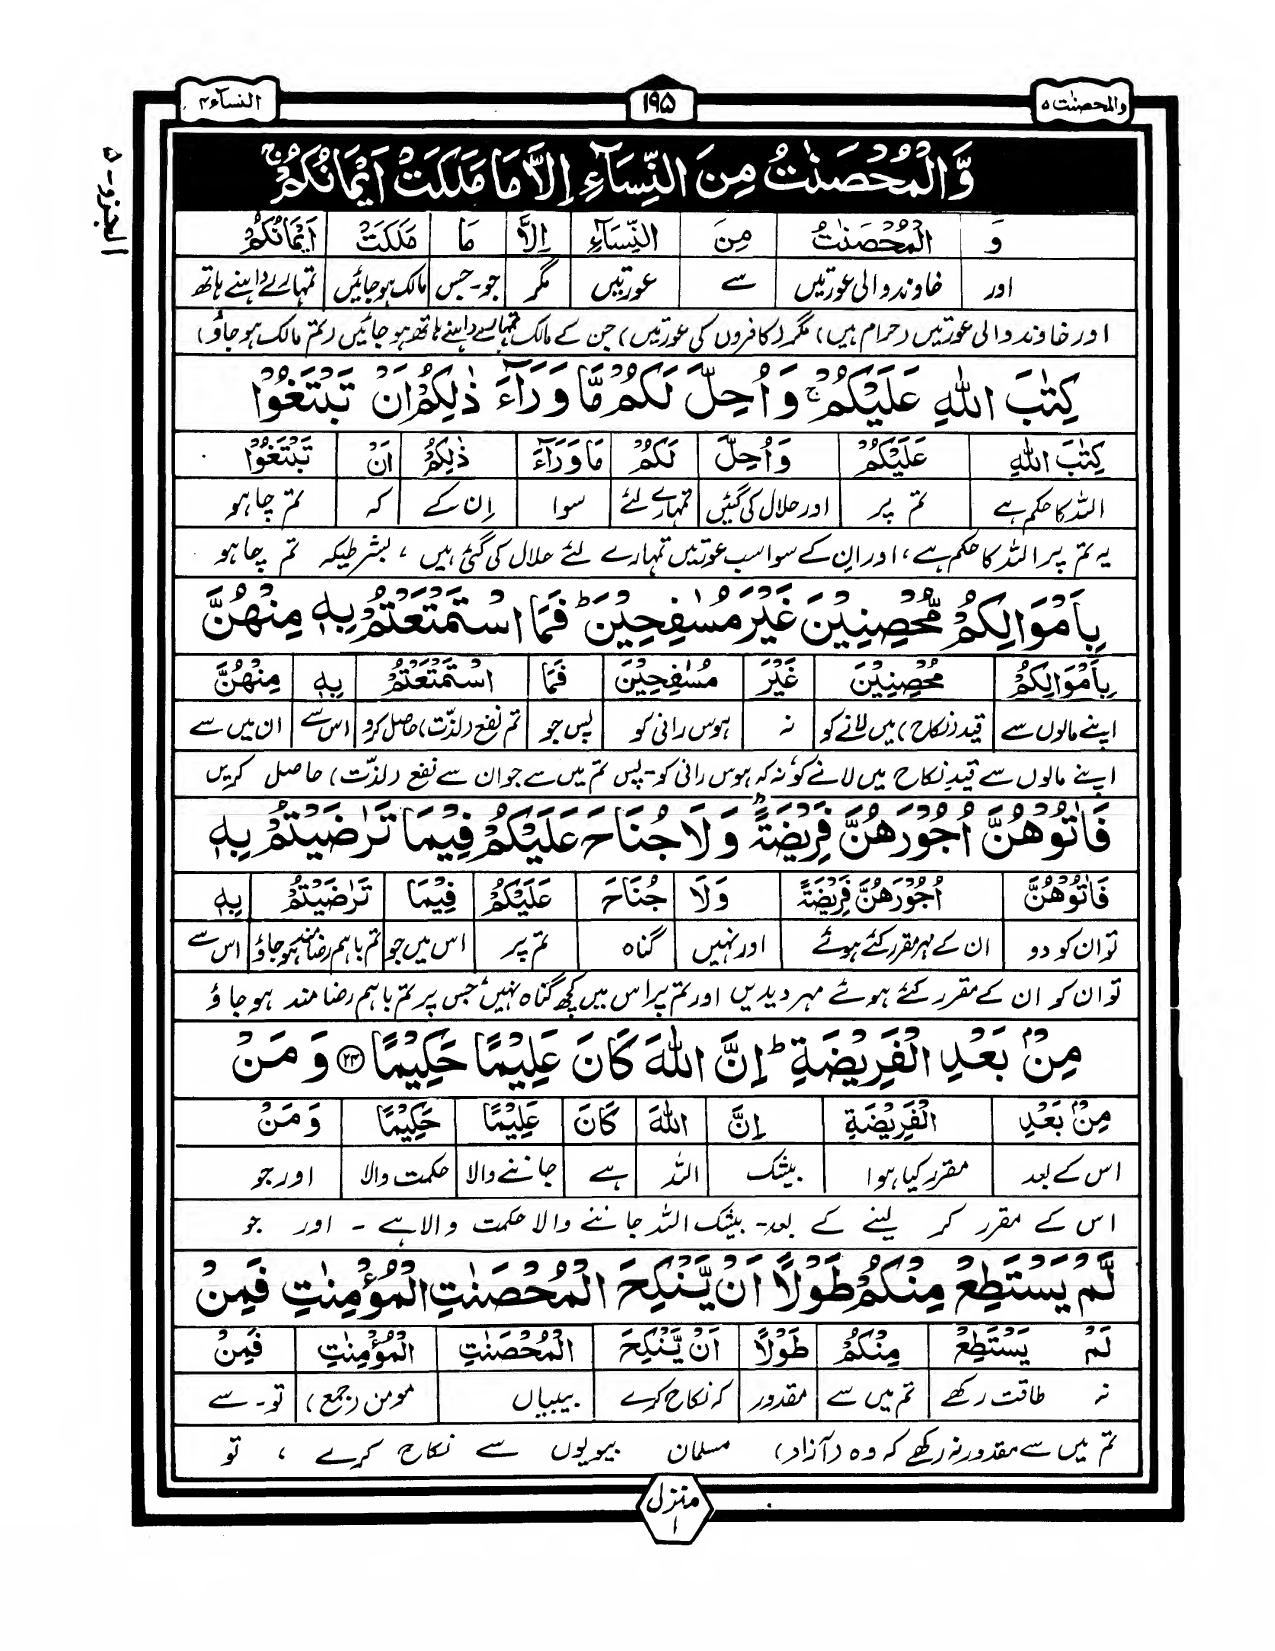 والمحصنٰت ۵
۱۹۵
النسآء ۴
الجزو - ۵
وَّالْمُحْصَنٰتُ مِنَ النِّسَآءِ اِلَّا مَا مَلَكَتْ اَيْمَانُكُمْ ۚ
وَ الْمُحْصَنٰتُ مِنَ النِّسَآءِ اِلَّا مَا مَلَكَتْ اَيْمَانُكُمْ
اور خاوند والی عورتیں سے عورتیں مگر جو-جس مالک ہوجائیں تمہارے داہنے ہاتھ
اور خاوند والی عورتیں (حرام ہیں) مگر (کافروں کی عورتیں) جن کے مالک تمہارے داہنے ہاتھ ہو جائیں (تم مالک ہو جاؤ)
كِتٰبَ اللّٰهِ عَلَيْكُمْ ۚ وَاُحِلَّ لَكُمْ مَّا وَرَآءَ ذٰلِكُمْ اَنْ تَبْتَغُوْا
كِتٰبَ اللّٰهِ عَلَيْكُمْ وَاُحِلَّ لَكُمْ مَا وَرَآءَ ذٰلِكُمْ اَنْ تَبْتَغُوْا
اللہ کا حکم ہے تم پر اور حلال کی گئیں تمہارے لئے سوا اِن کے کہ تم چاہو
یہ تم پر اللہ کا حکم ہے، اور اِن کے سوا سب عورتیں تمہارے لئے حلال کی گئی ہیں ، بشرطیکہ تم چاہو
بِاَمْوَالِكُمْ مُّحْصِنِيْنَ غَيْرَ مُسٰفِحِيْنَ ؕ فَمَا اسْتَمْتَعْتُمْ بِهٖ مِنْهُنَّ
بِاَمْوَالِكُمْ مُحْصِنِيْنَ غَيْرَ مُسٰفِحِيْنَ فَمَا اسْتَمْتَعْتُمْ بِهٖ مِنْهُنَّ
اپنے مالوں سے قید (نکاح) میں لانے کو نہ ہوس رانی کو پس جو تم نفع (لذّت) حاصل کرو اس سے ان میں سے
اپنے مالوں سے قیدِ نکاح میں لانے کو، نہ کہ ہوس رانی کو - پس تم میں سے جو ان سے نفع (لذّت) حاصل کریں
فَاٰتُوْهُنَّ اُجُوْرَهُنَّ فَرِيْضَةً ؕ وَلَا جُنَاحَ عَلَيْكُمْ فِيْمَا تَرٰضَيْتُمْ بِهٖ
فَاٰتُوْهُنَّ اُجُوْرَهُنَّ فَرِيْضَةً وَلَا جُنَاحَ عَلَيْكُمْ فِيْمَا تَرٰضَيْتُمْ بِهٖ
تو ان کو دو ان کے مہر مقرر کئے ہوئے اور نہیں گناہ تم پر اس میں جو تم باہم رضامند ہو جاؤ اس سے
تو ان کو ان کے مقرر کئے ہوئے مہر دیدیں اور تم پر اس میں کچھ گناہ نہیں جس پر تم باہم رضا مند ہو جاؤ
مِنْۢ بَعْدِ الْفَرِيْضَةِ ؕ اِنَّ اللّٰهَ كَانَ عَلِيْمًا حَكِيْمًا ۲۴ وَمَنْ
مِنْۢ بَعْدِ الْفَرِيْضَةِ اِنَّ اللّٰهَ كَانَ عَلِيْمًا حَكِيْمًا وَمَنْ
اس کے بعد مقرر کیا ہوا بیشک اللہ ہے جاننے والا حکمت والا اور جو
اس کے مقرر کر لینے کے بعد - بیشک اللہ جاننے والا حکمت والا ہے - اور جو
لَّمْ يَسْتَطِعْ مِنْكُمْ طَوْلًا اَنْ يَّنْكِحَ الْمُحْصَنٰتِ الْمُؤْمِنٰتِ فَمِنْ
لَمْ يَسْتَطِعْ مِنْكُمْ طَوْلًا اَنْ يَّنْكِحَ الْمُحْصَنٰتِ الْمُؤْمِنٰتِ فَمِنْ
نہ طاقت رکھے تم میں سے مقدور کہ نکاح کرے بیبیاں مومن (جمع) تو - سے
تم میں سے مقدور نہ رکھے کہ وہ (آزاد) مسلمان بیویوں سے نکاح کرے ، تو
منزل
۱